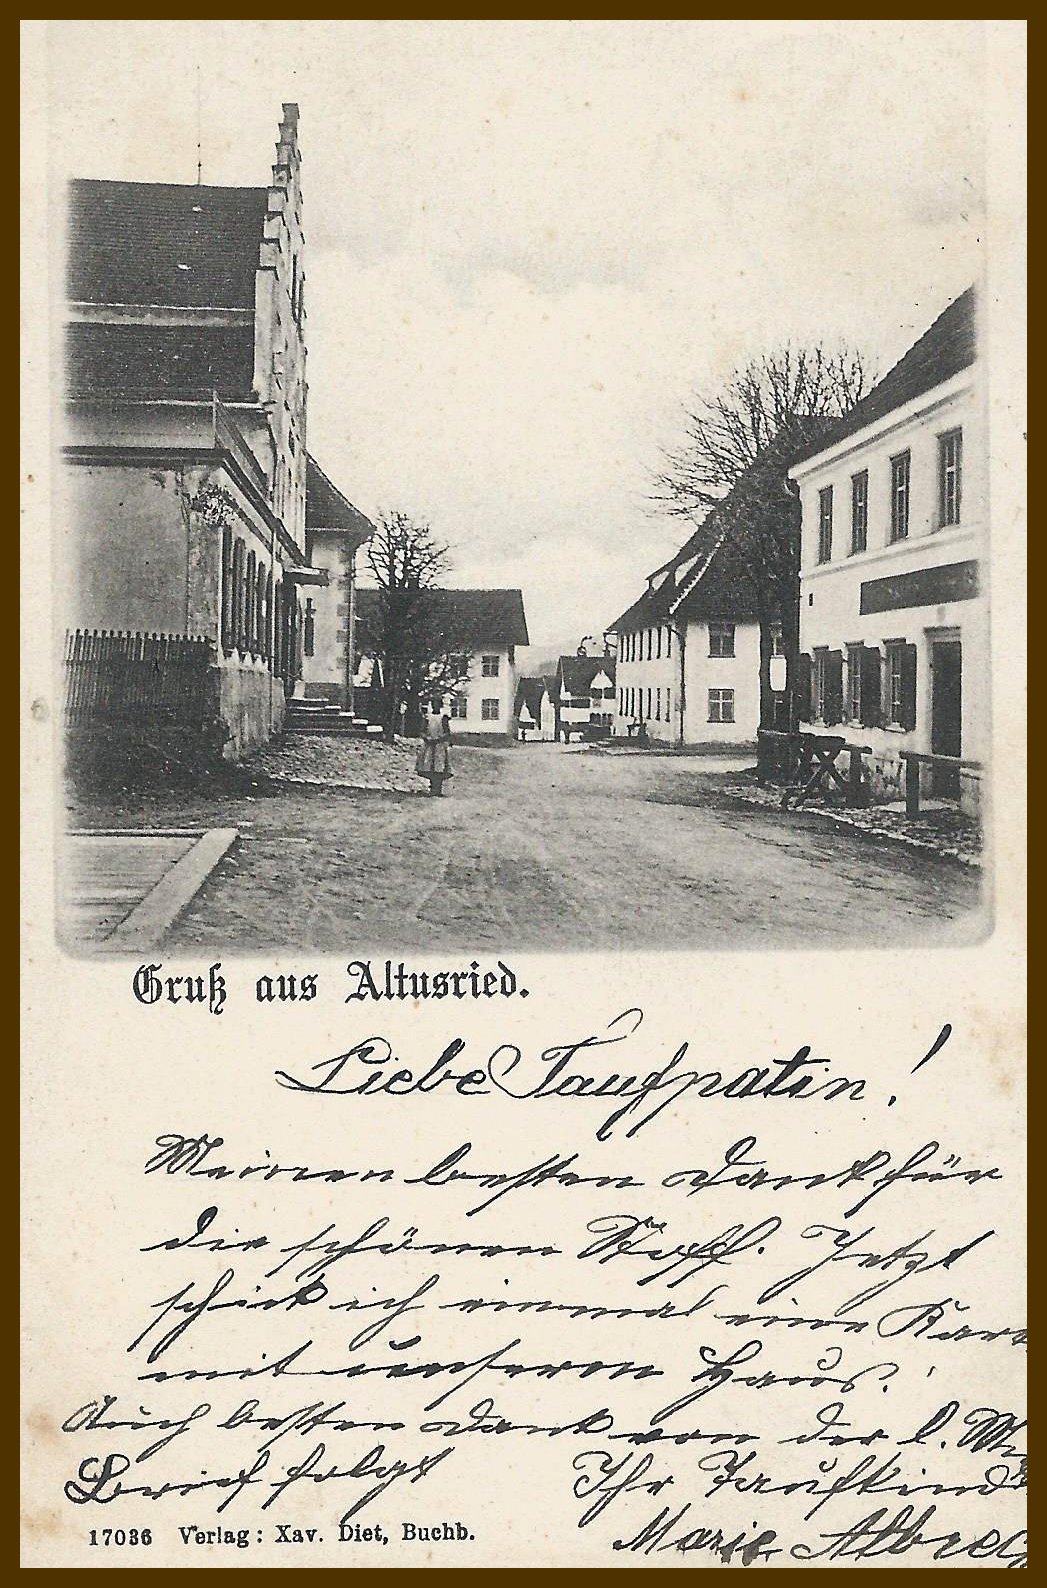 Gruß aus Altusried.
Liebe Taufpatin!
Meinen besten Dank für
die schönen Stoff. Jetzt
schick ich einmal eine Kart
mit unserem Haus.
Auch besten Dank von der l. M
Brief folgt Ihr Taufkind
Marie Albrec
17036 Verlag: Xav. Diet, Buchb.